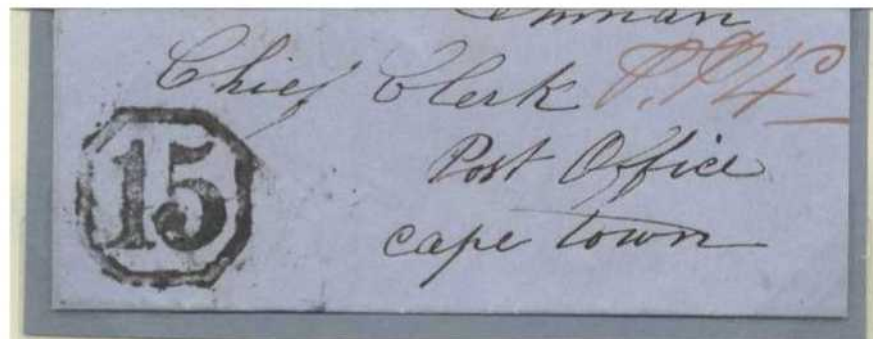 Chief Clerk
Post Office
Cape Town
15